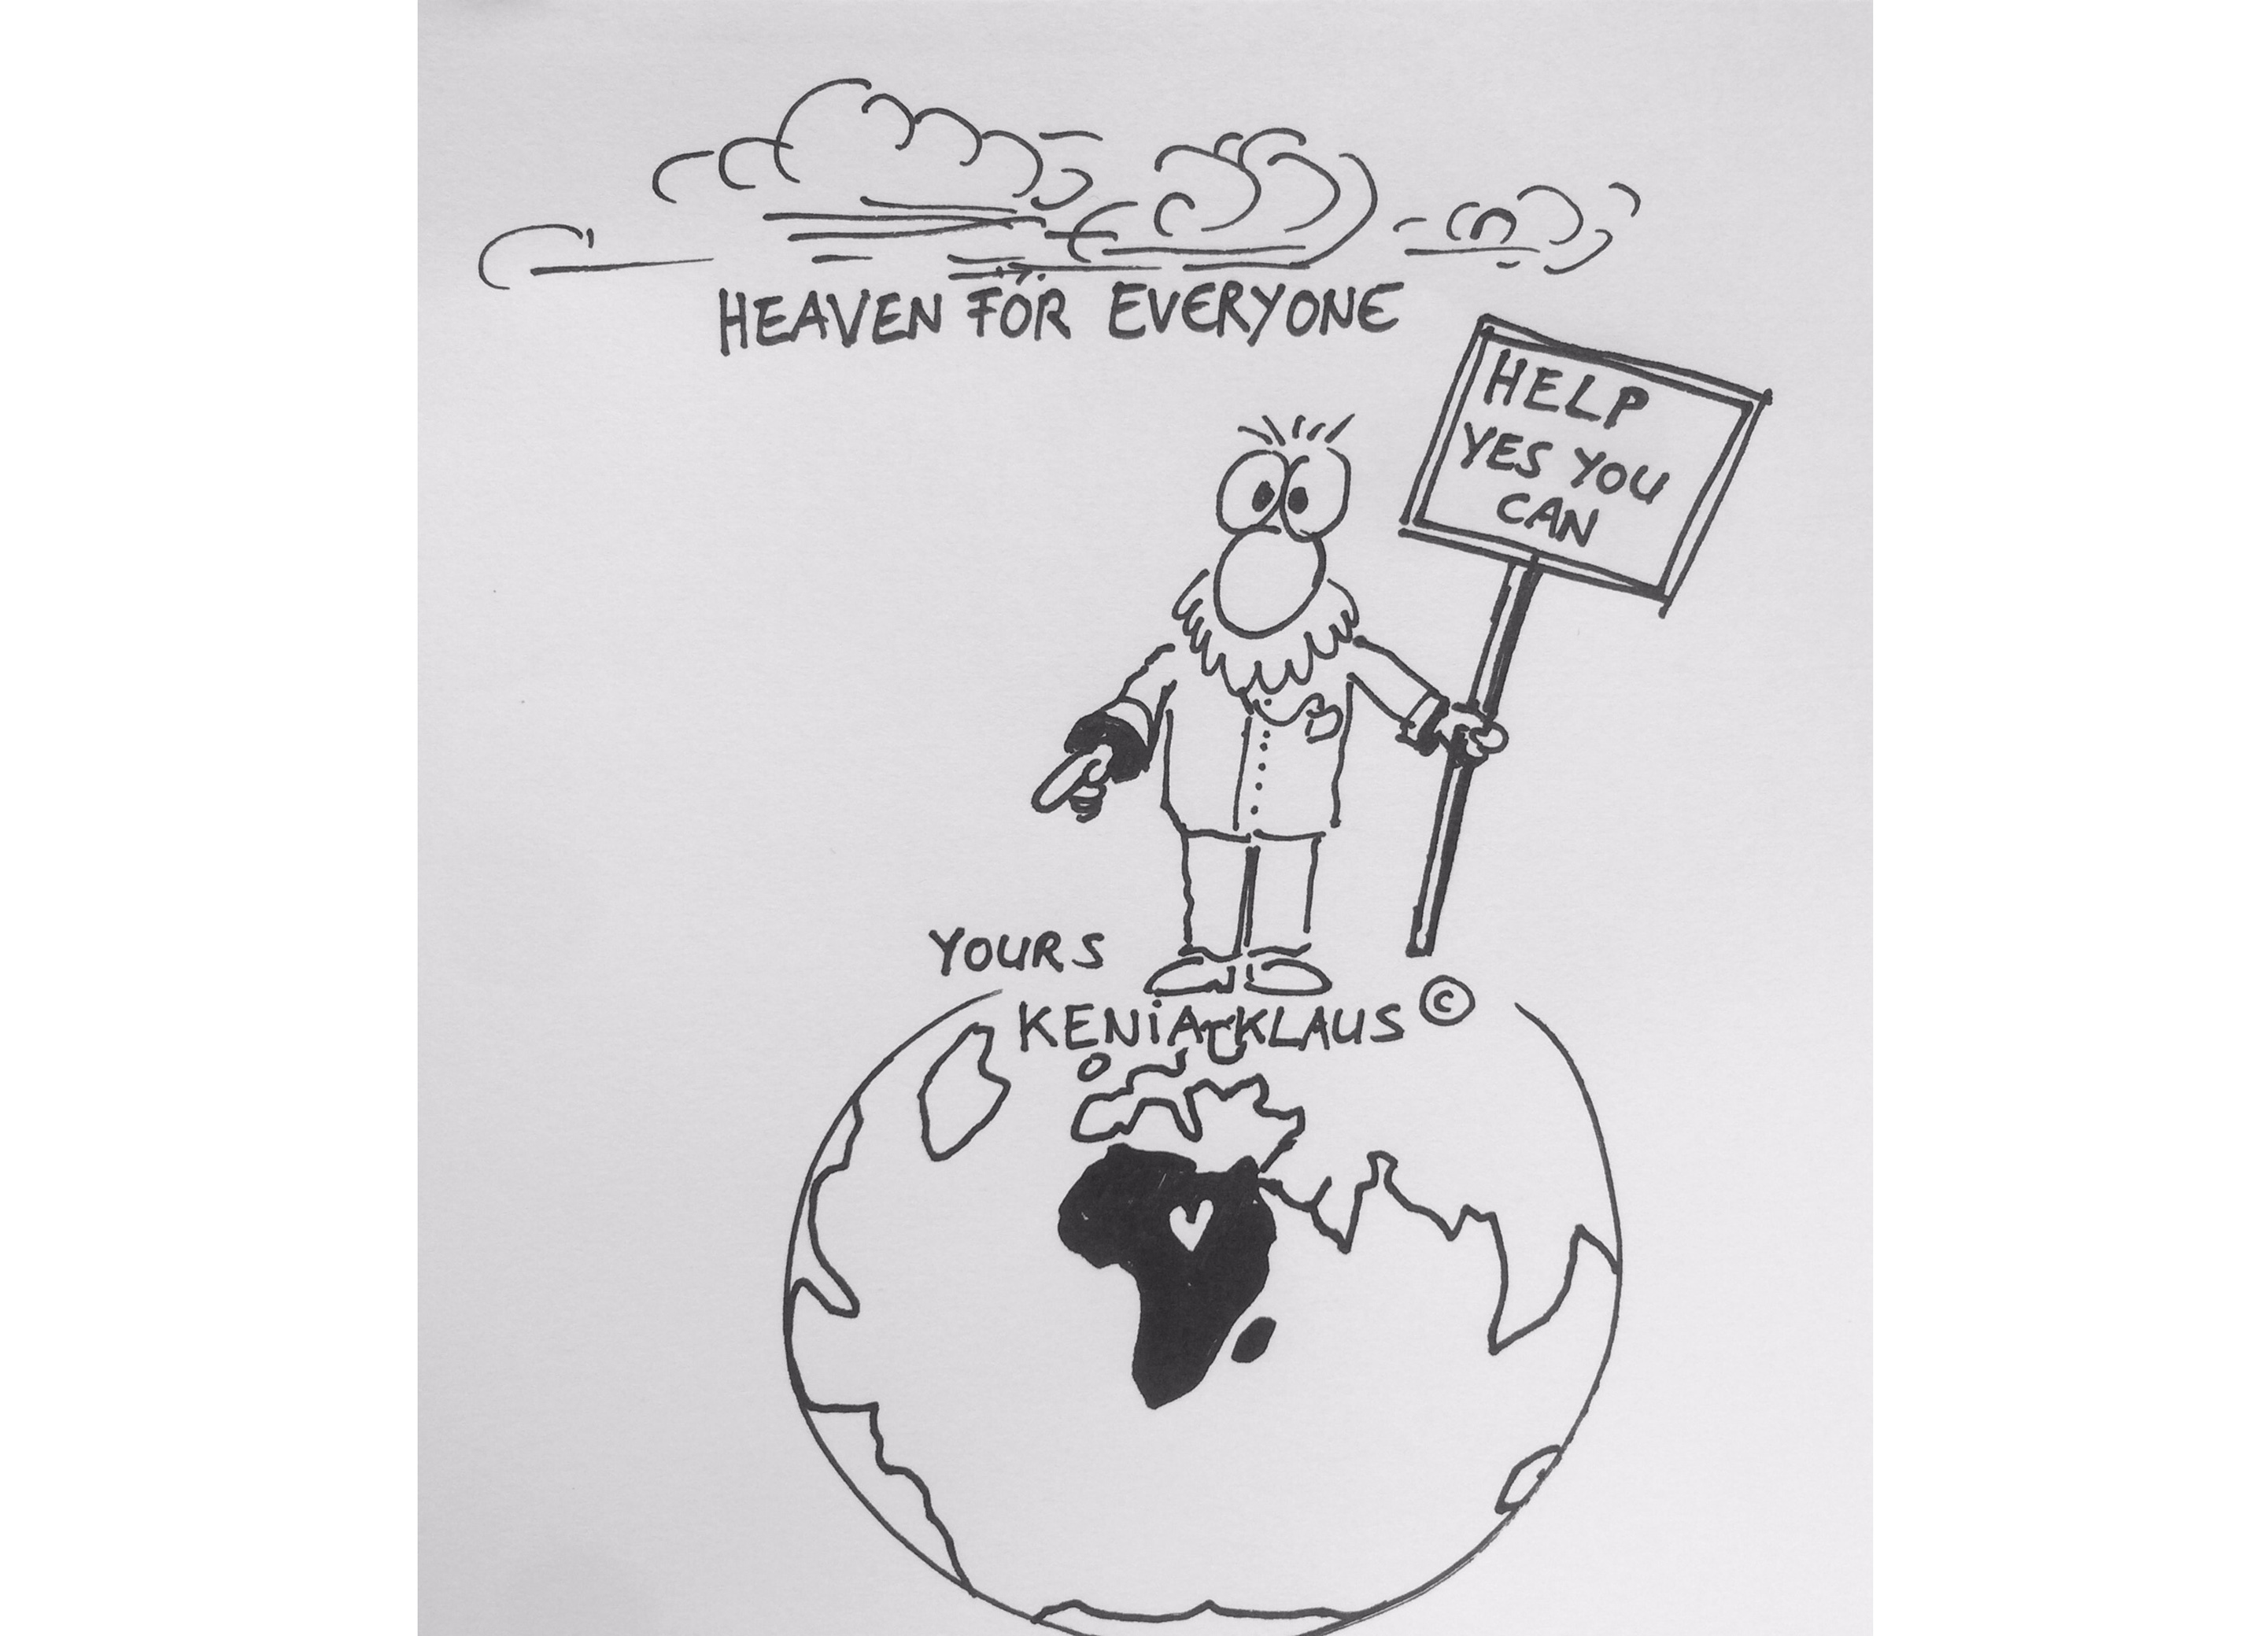 HEAVEN FOR EVERYONE
HELP
YES YOU
CAN
YOURS
KENiA-KLAUS ©